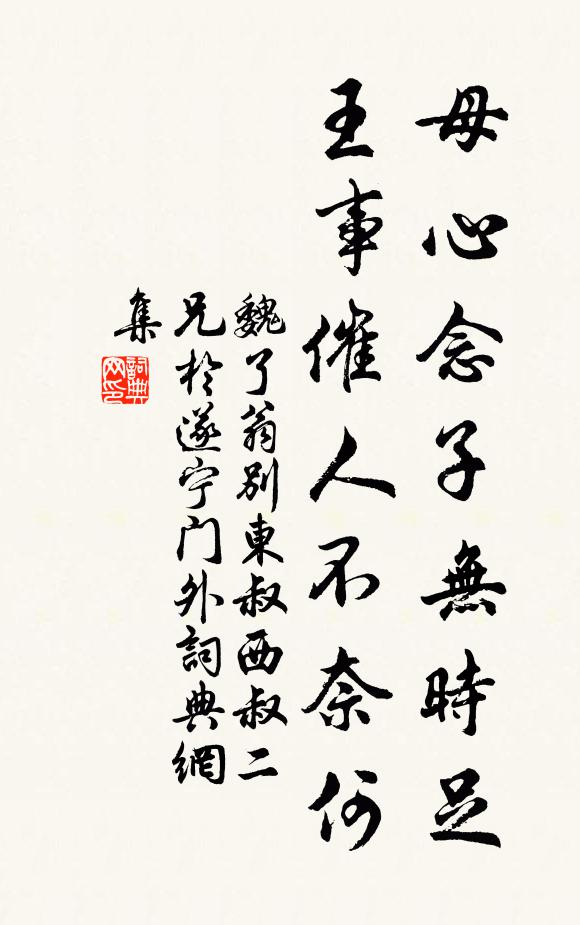 毋心念子無時足
王事催人不奈何
魏了翁別東叔西叔二
兄於遂宁门外詞典網
集
詞典
网印